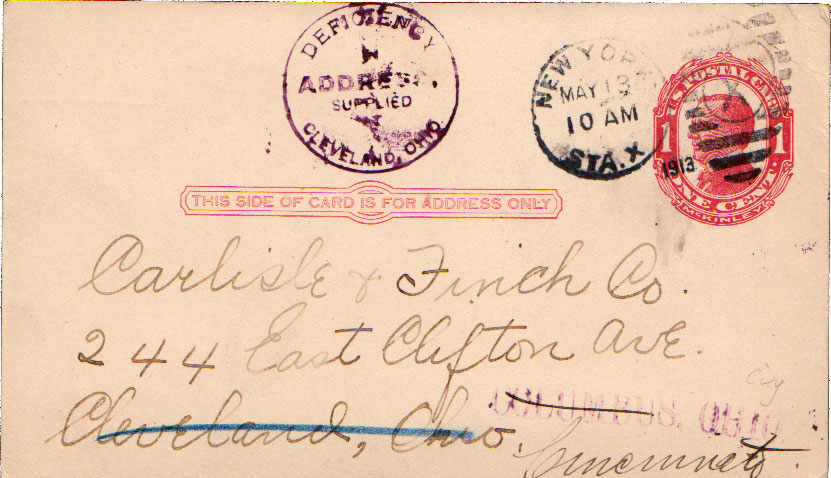 DEFICIENCY
ADDRESS
SUPPLIED
CLEVELAND, OHIO.
NEW YORK
MAY 13
10 AM
STA. X
1913
U.S. POSTAL CARD
1 1
ONE CENT
McKINLEY
THIS SIDE OF CARD IS FOR ADDRESS ONLY
Carlisle & Finch Co.
244 East Clifton Ave.
Cleveland, Ohio.
COLUMBUS, OHIO
Cincinnati